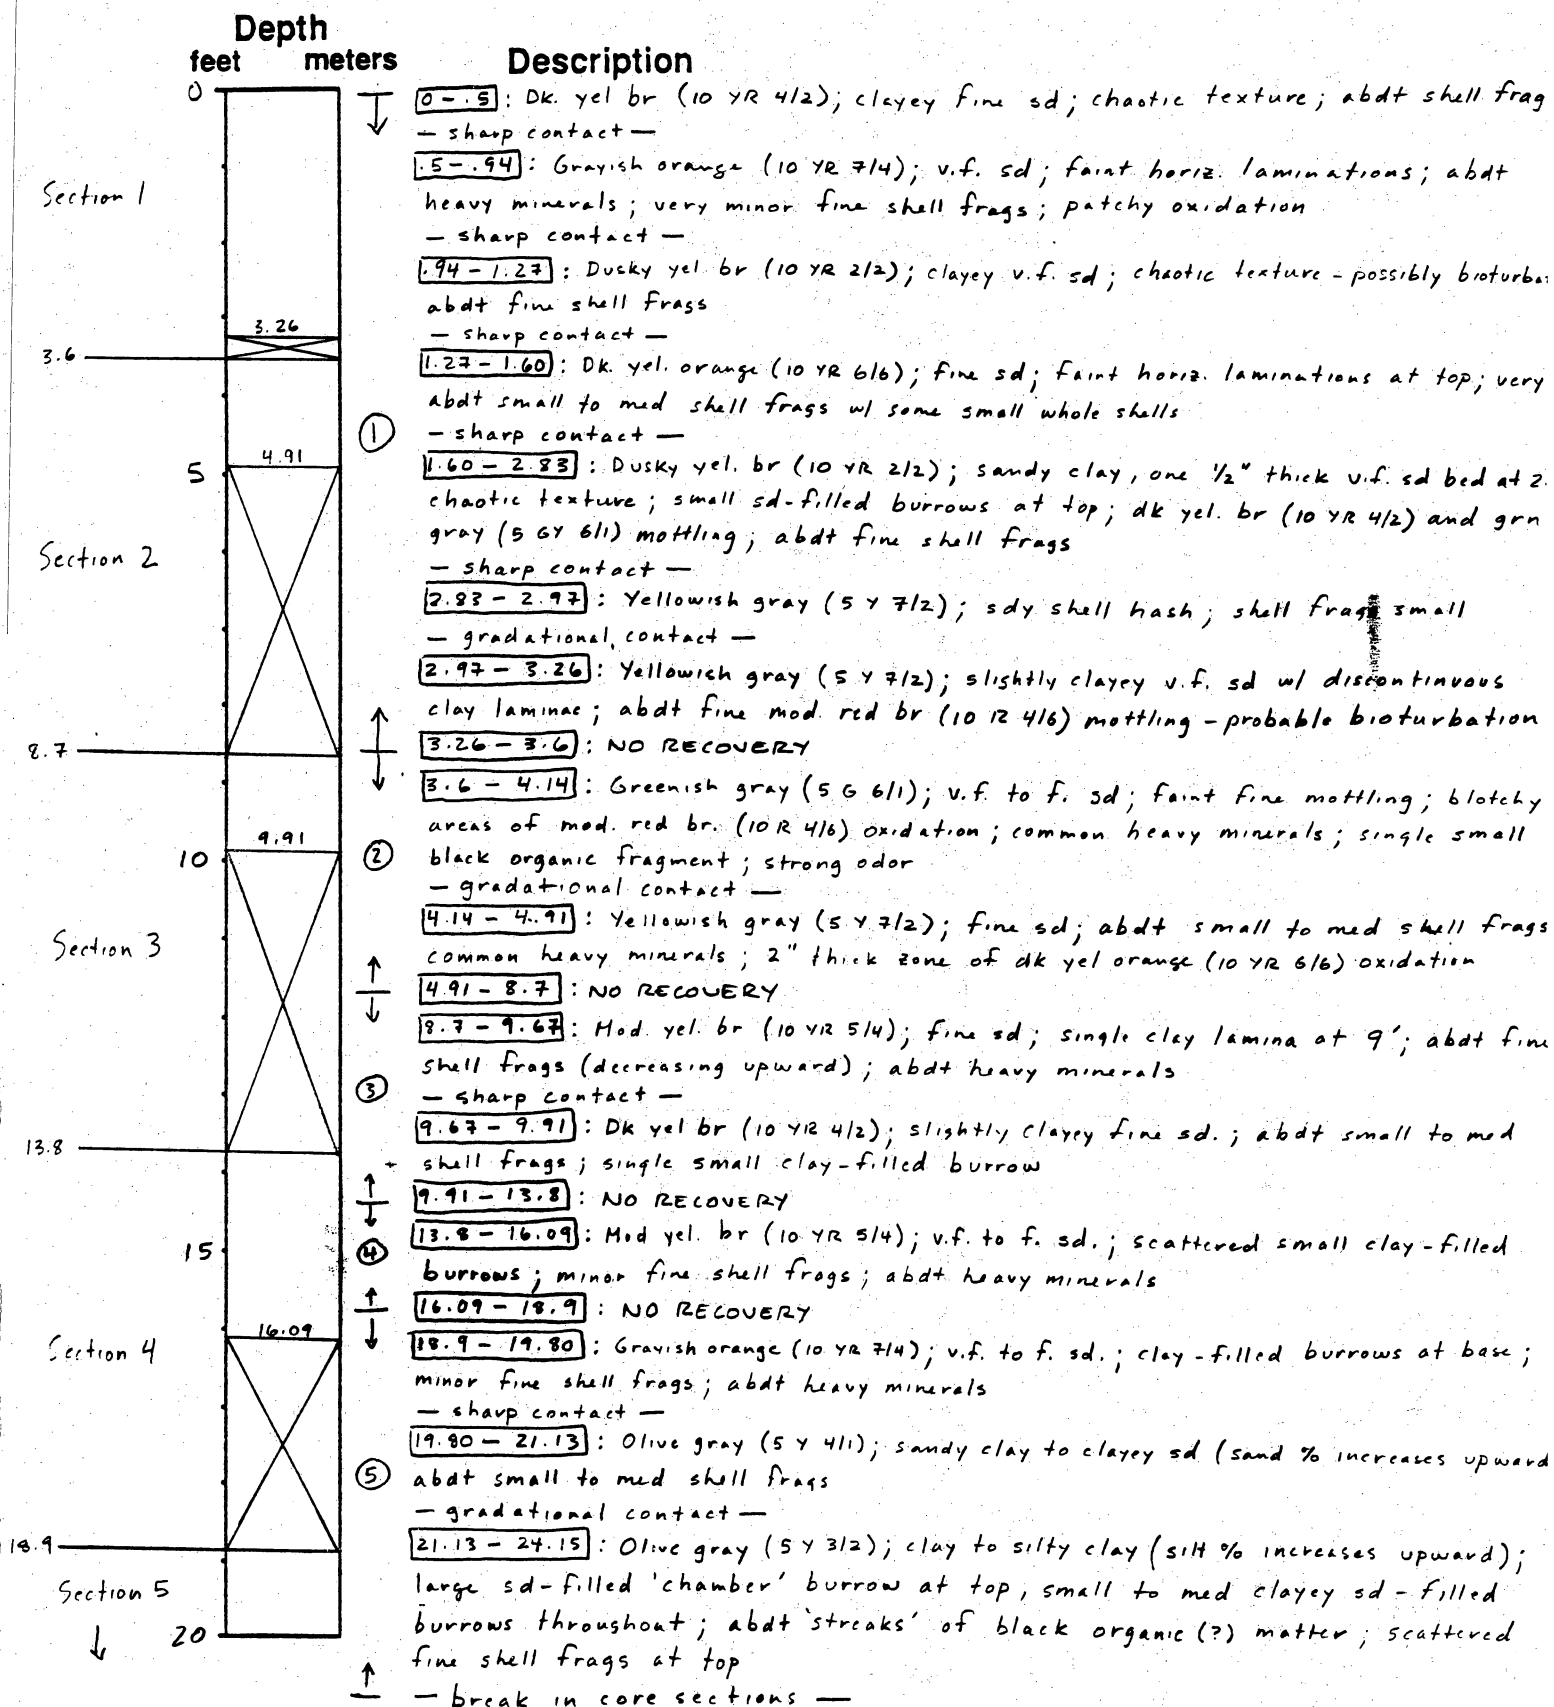 Depth
feet meters Description
0
0 - .5 : Dk. yel br (10 YR 4/2); clayey fine sd; chaotic texture; abdt shell frag
— sharp contact —
.5 - .94 : Grayish orange (10 YR 7/4); v.f. sd; faint horiz. laminations; abdt
Section 1
heavy minerals; very minor fine shell frags; patchy oxidation
— sharp contact —
.94 - 1.27 : Dusky yel br (10 YR 2/2); clayey v.f. sd; chaotic texture - possibly bioturba
abdt fine shell frags
3.26
— sharp contact —
3.6
1.27 - 1.60 : Dk. yel. orange (10 YR 6/6); fine sd; faint horiz. laminations at top; very
abdt small to med shell frags w/ some small whole shells
1
— sharp contact —
4.91
5
1.60 - 2.83 : Dusky yel. br (10 YR 2/2); sandy clay, one 1/2" thick v.f. sd bed at 2.
chaotic texture; small sd-filled burrows at top; dk yel. br (10 YR 4/2) and grn
gray (5 GY 6/1) mottling; abdt fine shell frags
Section 2
— sharp contact —
2.83 - 2.97 : Yellowish gray (5 Y 7/2); sdy shell hash; shell frags small
— gradational contact —
2.97 - 3.26 : Yellowish gray (5 Y 7/2); slightly clayey v.f. sd w/ discontinuous
clay laminae; abdt fine mod. red br (10 R 4/6) mottling - probable bioturbation
8.7
3.26 - 3.6 : NO RECOVERY
3.6 - 4.14 : Greenish gray (5 G 6/1); v.f. to f. sd; faint fine mottling; blotchy
areas of mod. red br. (10 R 4/6) oxidation; common heavy minerals; single small
9.91
10
2
black organic fragment; strong odor
— gradational contact —
4.14 - 4.91 : Yellowish gray (5 Y 7/2); fine sd; abdt small to med shell frags
Section 3
common heavy minerals; 2" thick zone of dk yel orange (10 YR 6/6) oxidation
4.91 - 8.7 : NO RECOVERY
8.7 - 9.67 : Mod. yel. br (10 YR 5/4); fine sd; single clay lamina at 9'; abdt fine
shell frags (decreasing upward); abdt heavy minerals
3
— sharp contact —
9.67 - 9.91 : Dk yel br (10 YR 4/2); slightly clayey fine sd.; abdt small to med
13.8
shell frags; single small clay-filled burrow
9.91 - 13.8 : NO RECOVERY
13.8 - 16.09 : Mod yel. br (10 YR 5/4); v.f. to f. sd.; scattered small clay-filled
15
4
burrows; minor fine shell frags; abdt heavy minerals
16.09 - 18.9 : NO RECOVERY
16.09
Section 4
18.9 - 19.80 : Grayish orange (10 YR 7/4); v.f. to f. sd.; clay-filled burrows at base;
minor fine shell frags; abdt heavy minerals
— sharp contact —
19.80 - 21.13 : Olive gray (5 Y 4/1); sandy clay to clayey sd (sand % increases upward
5
abdt small to med shell frags
— gradational contact —
18.9
21.13 - 24.15 : Olive gray (5 Y 3/2); clay to silty clay (silt % increases upward);
Section 5
large sd-filled 'chamber' burrow at top, small to med clayey sd-filled
20
burrows throughout; abdt 'streaks' of black organic (?) matter; scattered
fine shell frags at top
— break in core sections —